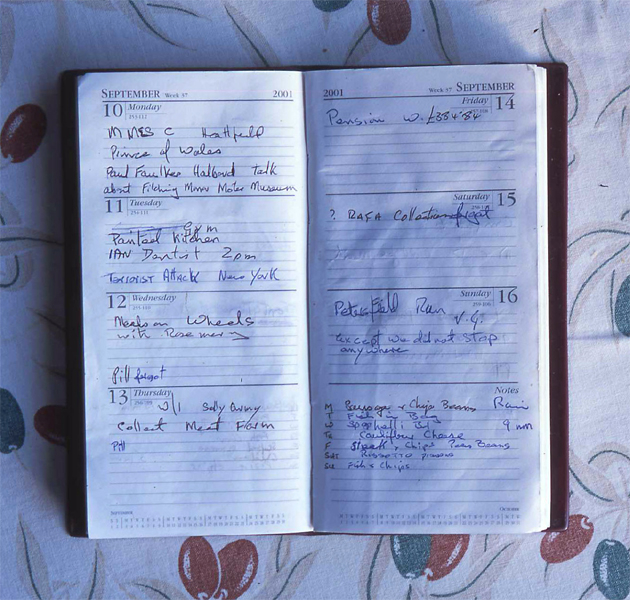 SEPTEMBER Week 37 2001
10 Monday
M MES C Hatfield
Prince of Wales
Paul Faulkner Halband talk
about Fitching Mimms Motor Museum
11 Tuesday
Painted Kitchen
IAN Dentist 2pm
TERRORIST ATTACK NEW YORK
12 Wednesday
Meals on Wheels
with Rosemary
Pill forgot
13 Thursday
Collect Meat Farm
Pill
2001 Week 37 SEPTEMBER
Friday 14
Pension W.
Saturday 15
? RAFA Collection forgot
Sunday 16
Petersfield Run
V.G.
except we did not stop
anywhere
Notes
M Sausage & Chips Beans Rain
T Fish in Bag
W Spaghetti 9 mm
Th Cauliflower Cheese
F Steak & Chips Peas Beans
Sat
Su Fish & Chips